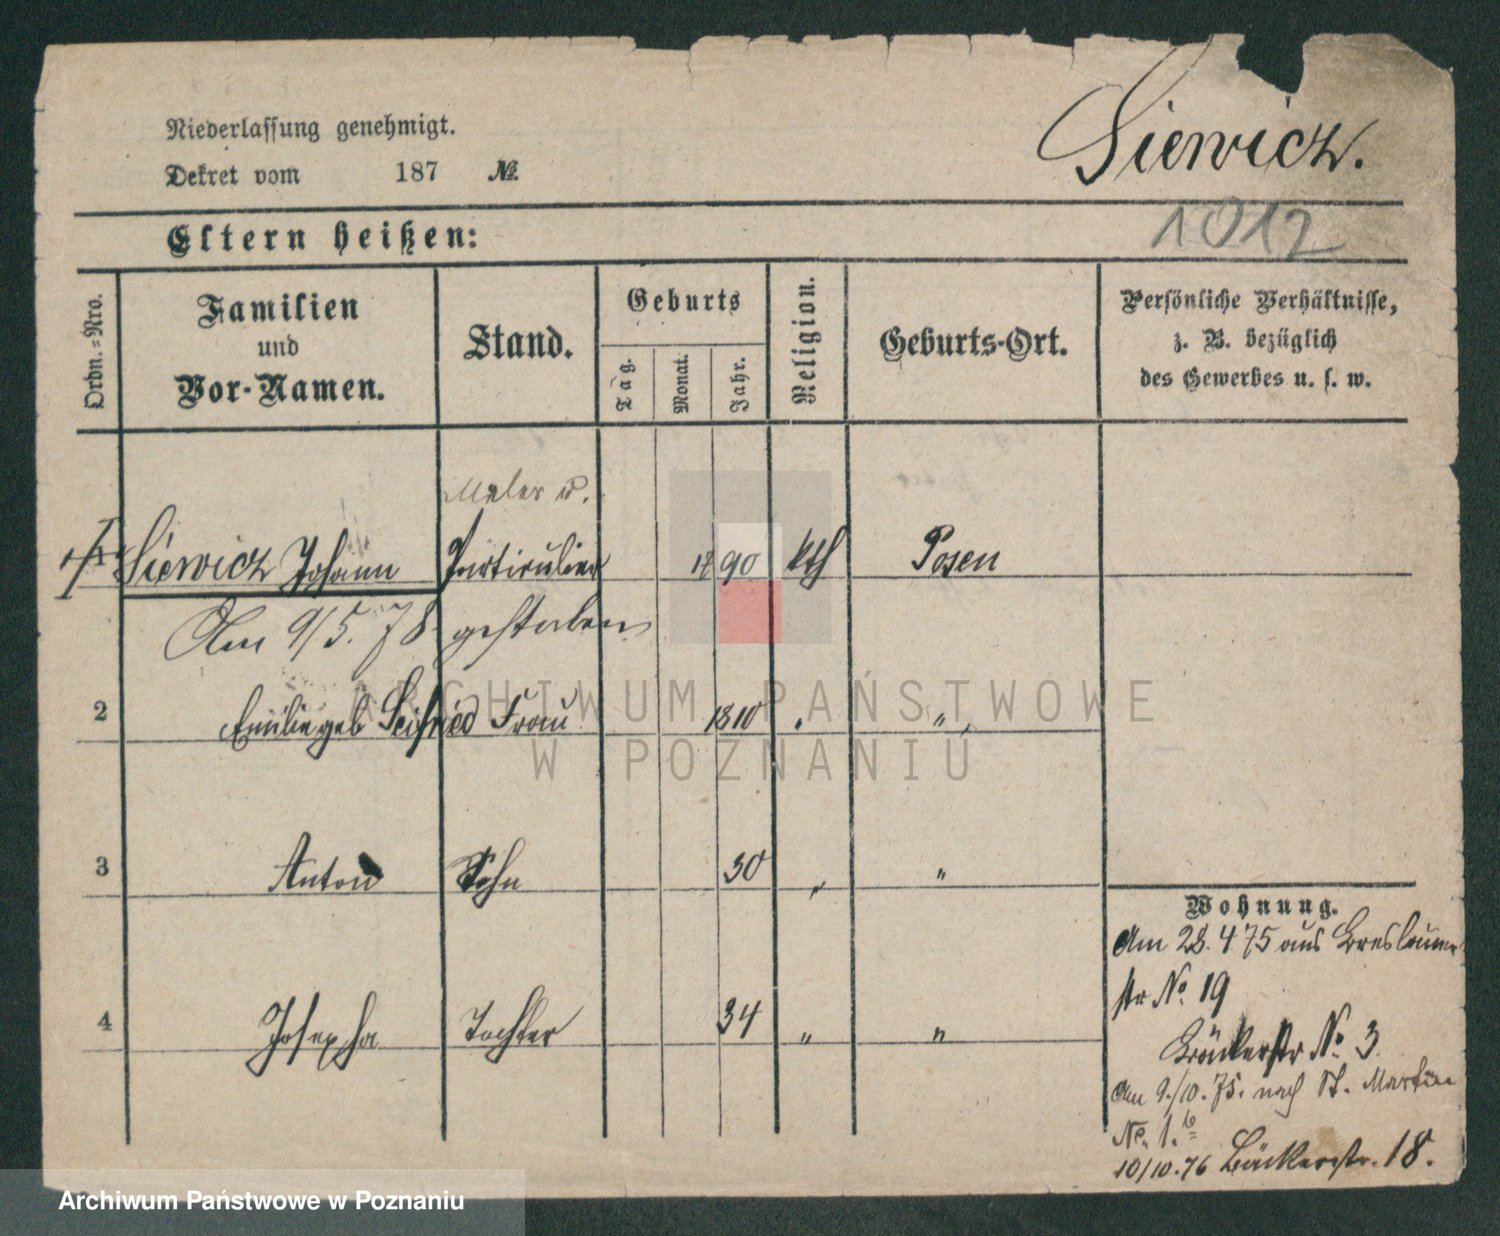 Niederlassung genehmigt.
Dekret vom 187 №
Siewicz.
1012
Eltern heißen:
Ordn.-Nro.
Familien
und
Vor-Namen.
Stand.
Geburts
Tag.
Monat.
Jahr.
Religion.
Geburts-Ort.
Persönliche Verhältnisse,
z. B. bezüglich
des Gewerbes u. s. w.
Maler u.
Siewicz Johann Particulier 1790 kth Posen
Am 9/5. 78 gestorben
2 Emilie geb Seifried Frau 1810 " "
3 Anton Sohn 30 " "
4 Josepha Tochter 34 " "
Wohnung.
Am 28. 4 75 aus Breslauer
str No. 19
Bäckerstr No. 3
Am 9./10. 75. nach St. Martin
No. 1.
10/10.76 Bäckerstr. 18.
ARCHIWUM PAŃSTWOWE
W POZNANIU
Archiwum Państwowe w Poznaniu